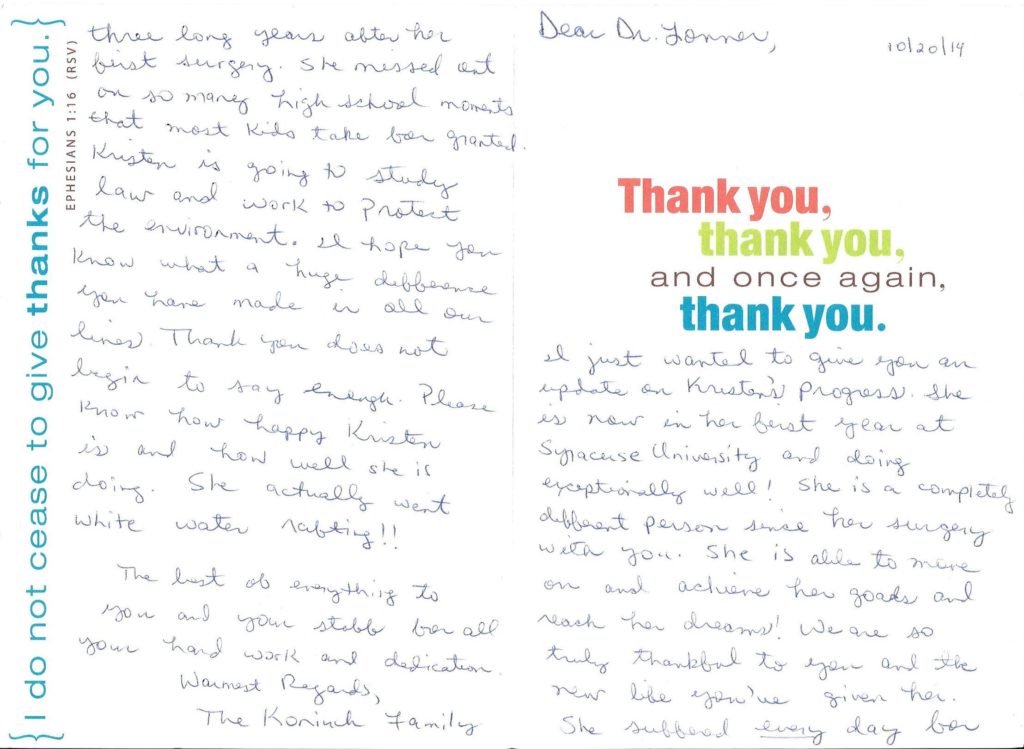 Dear Dr. Lonner,
10/20/14
Thank you,
thank you,
and once again,
thank you.
I just wanted to give you an
update on Kristen's progress. She
is now in her first year at
Syracuse University and doing
exceptionally well! She is a completely
different person since her surgery
with you. She is able to move
on and achieve her goals and
reach her dreams! We are so
truly thankful to you and the
new life you've given her.
She suffered every day for
three long years after her
first surgery. She missed out
on so many high school moments
that most kids take for granted.
Kristen is going to study
law and work to protect
the environment. I hope you
know what a huge difference
you have made in all our
lives. Thank you does not
begin to say enough. Please
know how happy Kristen
is and how well she is
doing. She actually went
white water rafting!!
The best of everything to
you and your staff for all
your hard work and dedication.
Warmest Regards,
The Family
{I do not cease to give thanks for you.}
EPHESIANS 1:16 (RSV)